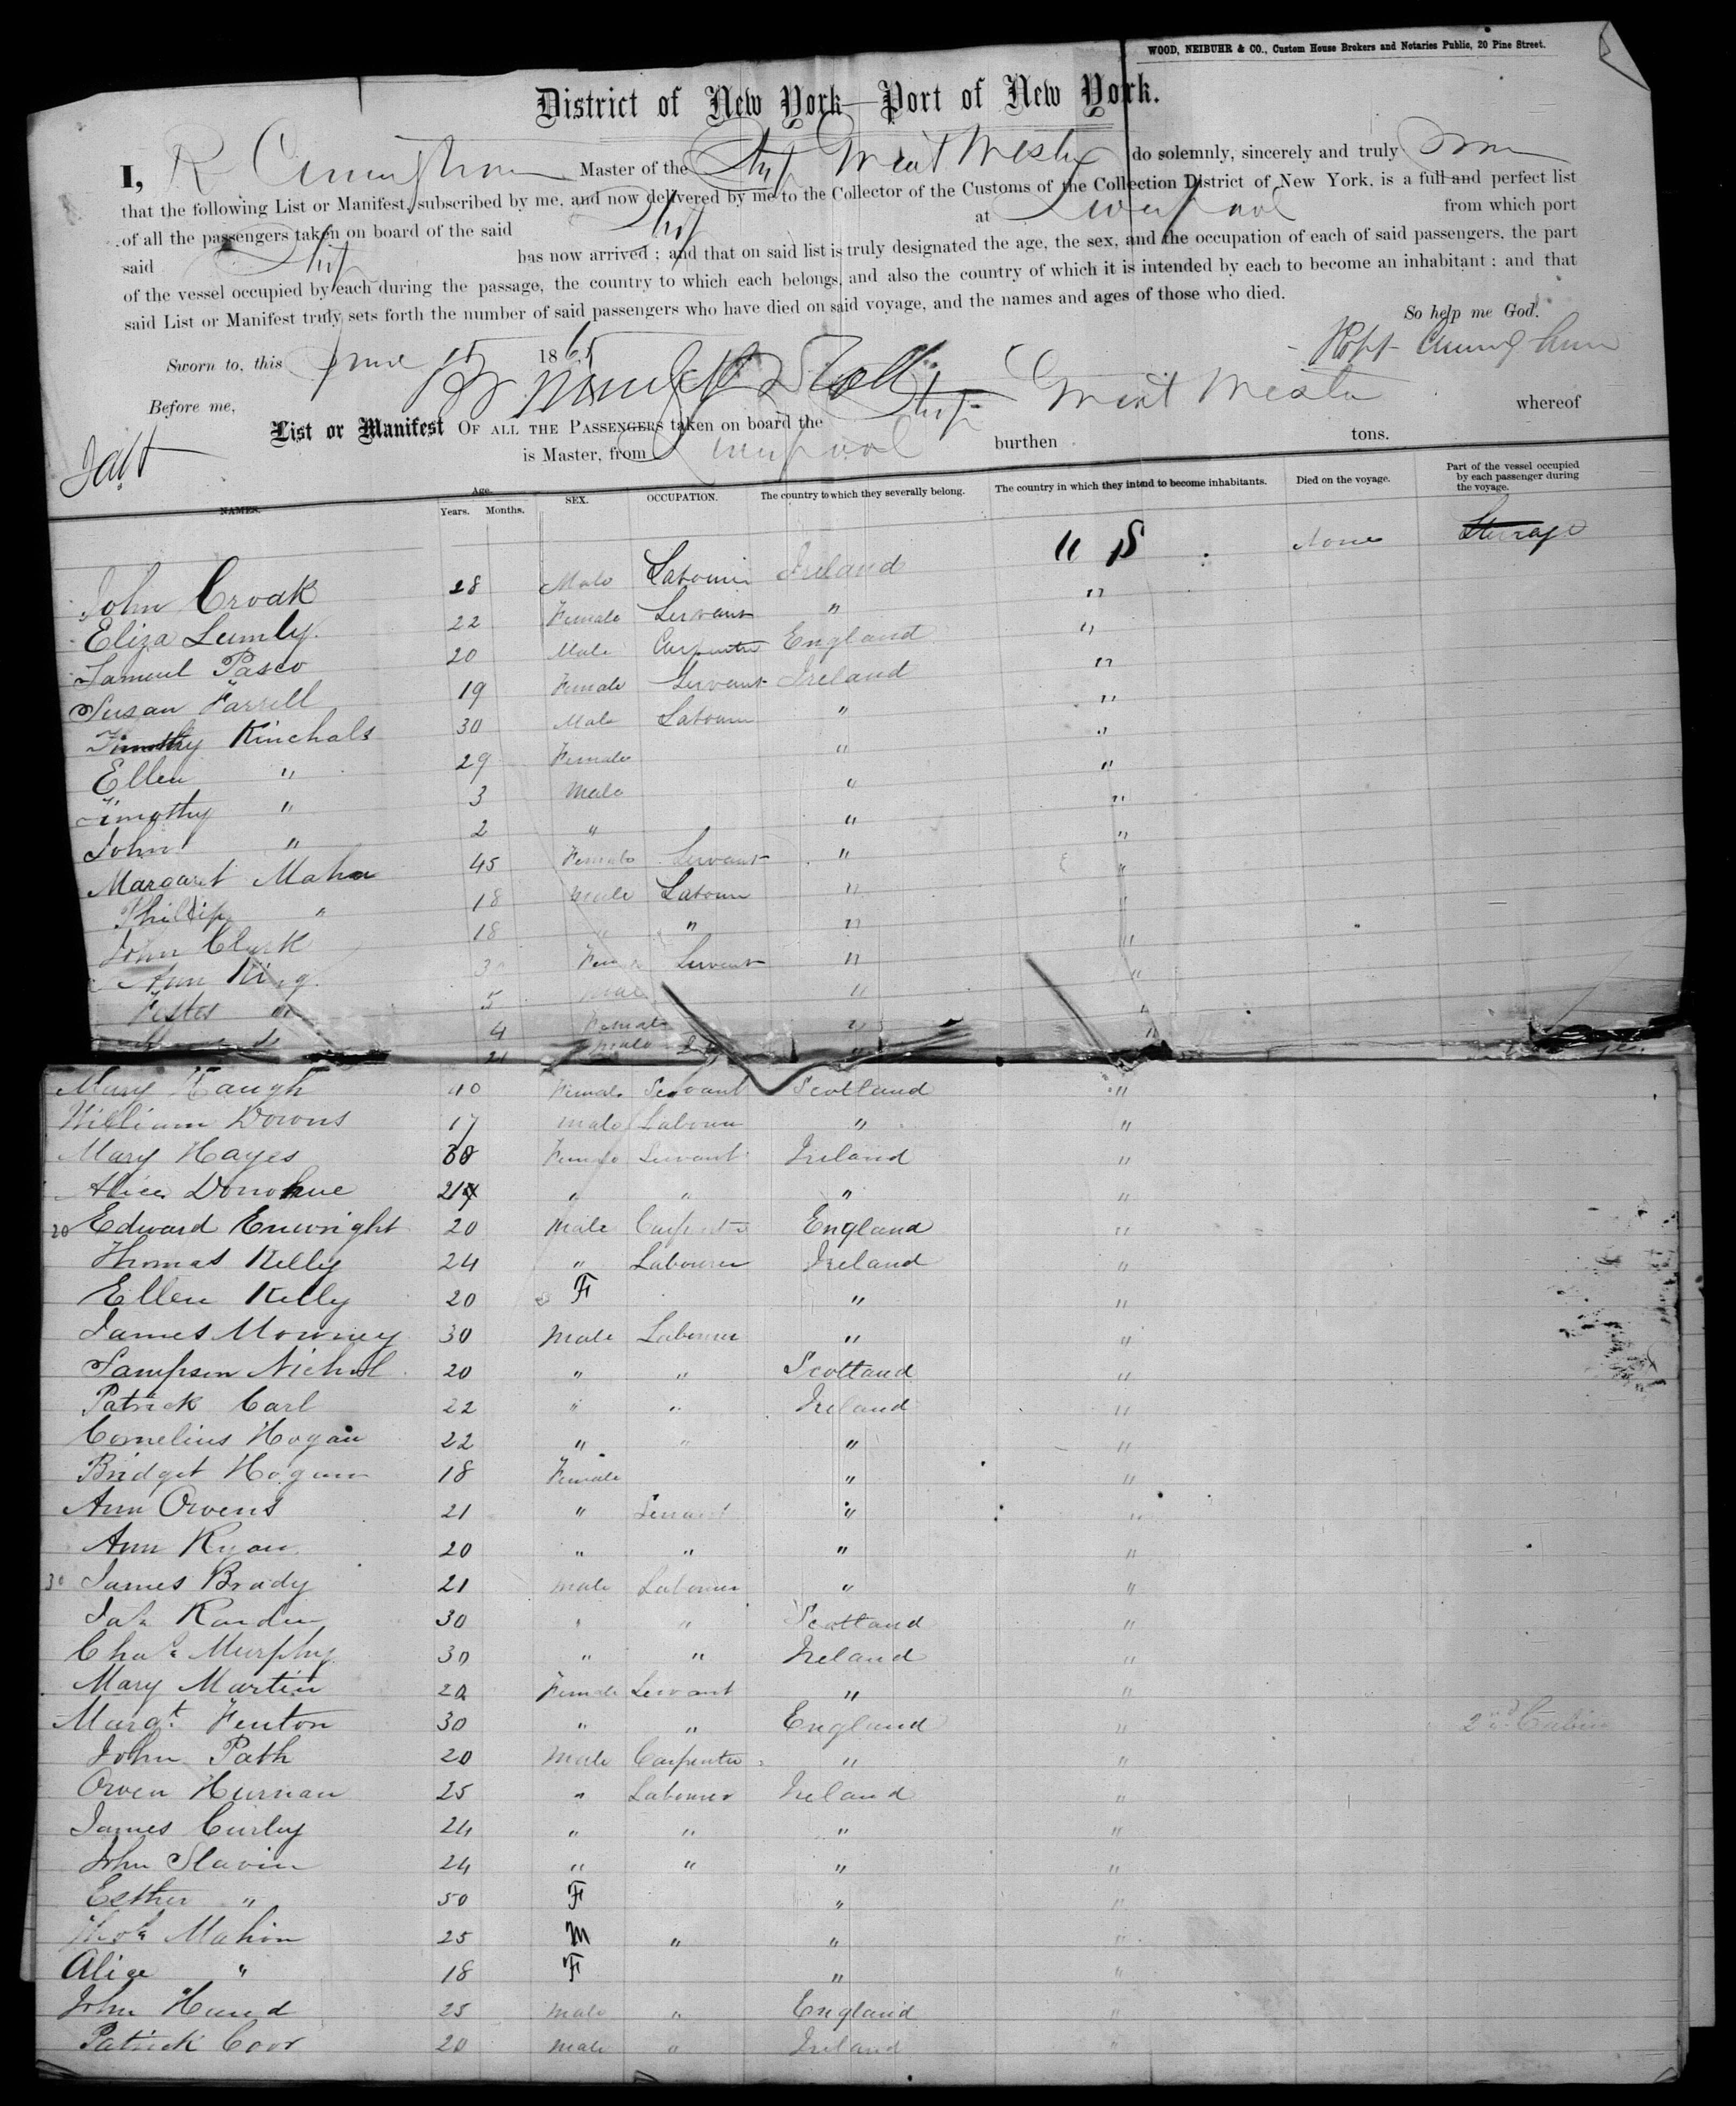 WOOD, NEIBUHR & CO., Custom House Brokers and Notaries Public, 20 Pine Street.
District of New York—Port of New York.
I, R Cunningham Master of the Ship Great Western do solemnly, sincerely and truly
that the following List or Manifest, subscribed by me, and now delivered by me to the Collector of the Customs of the Collection District of New York, is a full and perfect list
of all the passengers taken on board of the said Ship at Liverpool from which port
said Ship has now arrived ; and that on said list is truly designated the age, the sex, and the occupation of each of said passengers, the part
of the vessel occupied by each during the passage, the country to which each belongs, and also the country of which it is intended by each to become an inhabitant ; and that
said List or Manifest truly sets forth the number of said passengers who have died on said voyage, and the names and ages of those who died.
So help me God.
Sworn to, this June 15 1865
Before me,
List or Manifest OF ALL THE PASSENGERS taken on board the Ship Great Western whereof
is Master, from Liverpool burthen tons.
NAMES. Age. Years. Months. SEX. OCCUPATION. The country to which they severally belong. The country in which they intend to become inhabitants. Died on the voyage. Part of the vessel occupied by each passenger during the voyage.
John Croak 28 Male Labourer Ireland U S None Steerage
Eliza Lumly 22 Female Servant " "
Samuel Pasco 20 Male Carpenter England "
Susan Farrell 19 Female Servant Ireland "
Timothy Kinchals 30 Male Labourer " "
Ellen " 29 Female " "
Timothy " 3 Male " "
John " 2 " " "
Margaret Mahon 45 Female Servant " "
Phillip " 18 Male Labourer " "
John Clark 18 " " "
Ann King Female Servant " "
5 Male " "
4 Female " "
Male
Mary Haugh 40 Female Servant Scotland "
William Downs 17 Male Labourer " "
Mary Hayes 30 Female Servant Ireland "
Alice Donohue 24 " " " "
20 Edward Enwright 20 Male Carpenter England "
Thomas Kelly 24 " Labourer Ireland "
Ellen Kelly 20 F " "
James Mowney 30 Male Labourer " "
Sampson Nichol 20 " " Scotland "
Patrick Carl 22 " " Ireland "
Cornelius Hogan 22 " " " "
Bridget Hogan 18 Female " "
Ann Owens 21 " Servant " "
Ann Ryan 20 " " " "
30 James Brady 21 Male Labourer " "
30 " " Scotland "
Chas Murphy 30 " " Ireland "
Mary Martin 20 Female Servant " "
Margt Fenton 30 " " England " 2nd Cabin
John Path 20 Male Carpenter " "
Owen Hurnan 25 " Labourer Ireland "
James Curley 24 " " " "
John Slavin 24 " " " "
Esther " 50 F " "
Mahon 25 M " " "
Alice " 18 F " "
John Hund 25 Male " England "
Patrick Coor 20 Male " Ireland "